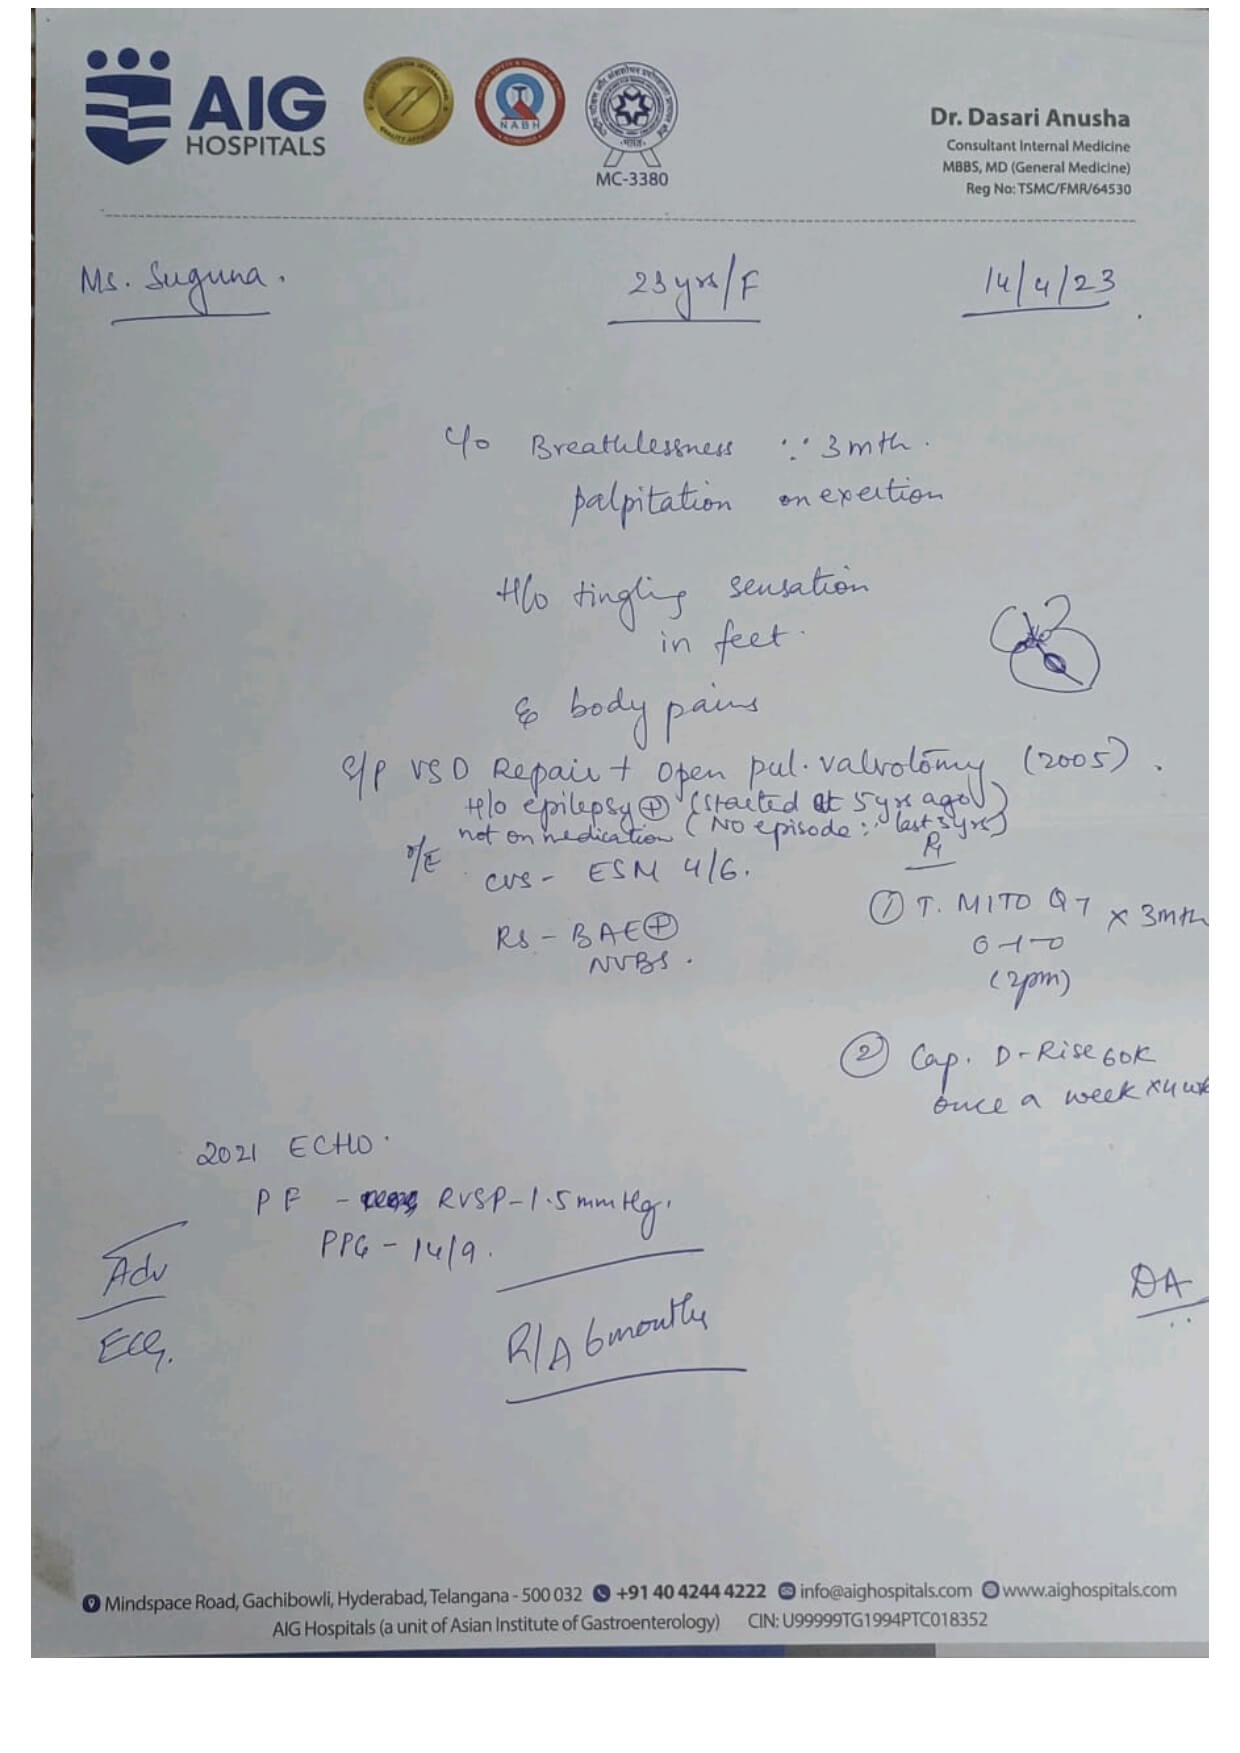 AIG
HOSPITALS
NABH
MC-3380
Dr. Dasari Anusha
Consultant Internal Medicine
MBBS, MD (General Medicine)
Reg No: TSMC/FMR/64530
Ms. Suguna. 23 yrs/F 14/4/23
c/o Breathlessness ∵ 3 mth.
palpitation on exertion
H/o tingling sensation
in feet.
& body pains
S/P VSD Repair + Open pul. valvotomy (2005).
H/o epilepsy ⊕ (started at 5 yrs ago)
not on medication (No episode ∵ last 3 yrs)
O/E
CVS - ESM 4/6.
RS - BAE ⊕
NVBS.
Rx
① T. MITO Q7 x 3mth
0-1-0
(2pm)
② Cap. D-Rise 60K
once a week x4 wk
2021 ECHO.
PF - RVSP-1.5 mmHg.
PPG - 14/9.
Adv
ECG.
R/A 6 months
DA
Mindspace Road, Gachibowli, Hyderabad, Telangana - 500 032 +91 40 4244 4222 info@aighospitals.com www.aighospitals.com
AIG Hospitals (a unit of Asian Institute of Gastroenterology) CIN: U99999TG1994PTC018352